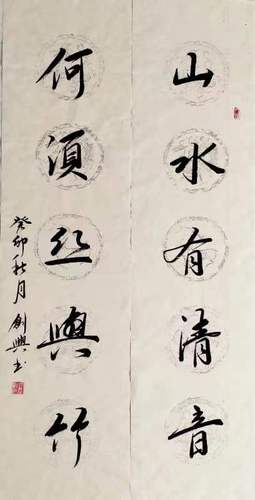 山水有清音
何須丝與竹
癸卯秋月 創興书